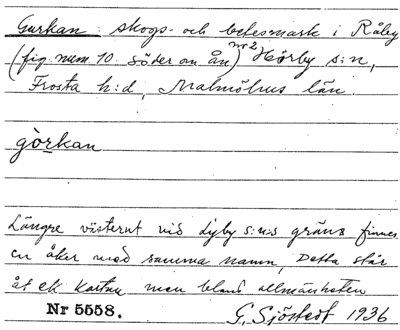 Gurkan: skogs- och betesmark i Råby
(fig. num 10. söder om ån) nr 2 Hörby s:n,
Frosta h:d, Malmöhus län.
gòrkan
Längre västerut vid Lyby s:ns gräns finnes
en åker med samma namn, Detta står
åt ek. kartan men bland allmänheten
Nr 5558. G. Sjöstedt 1936